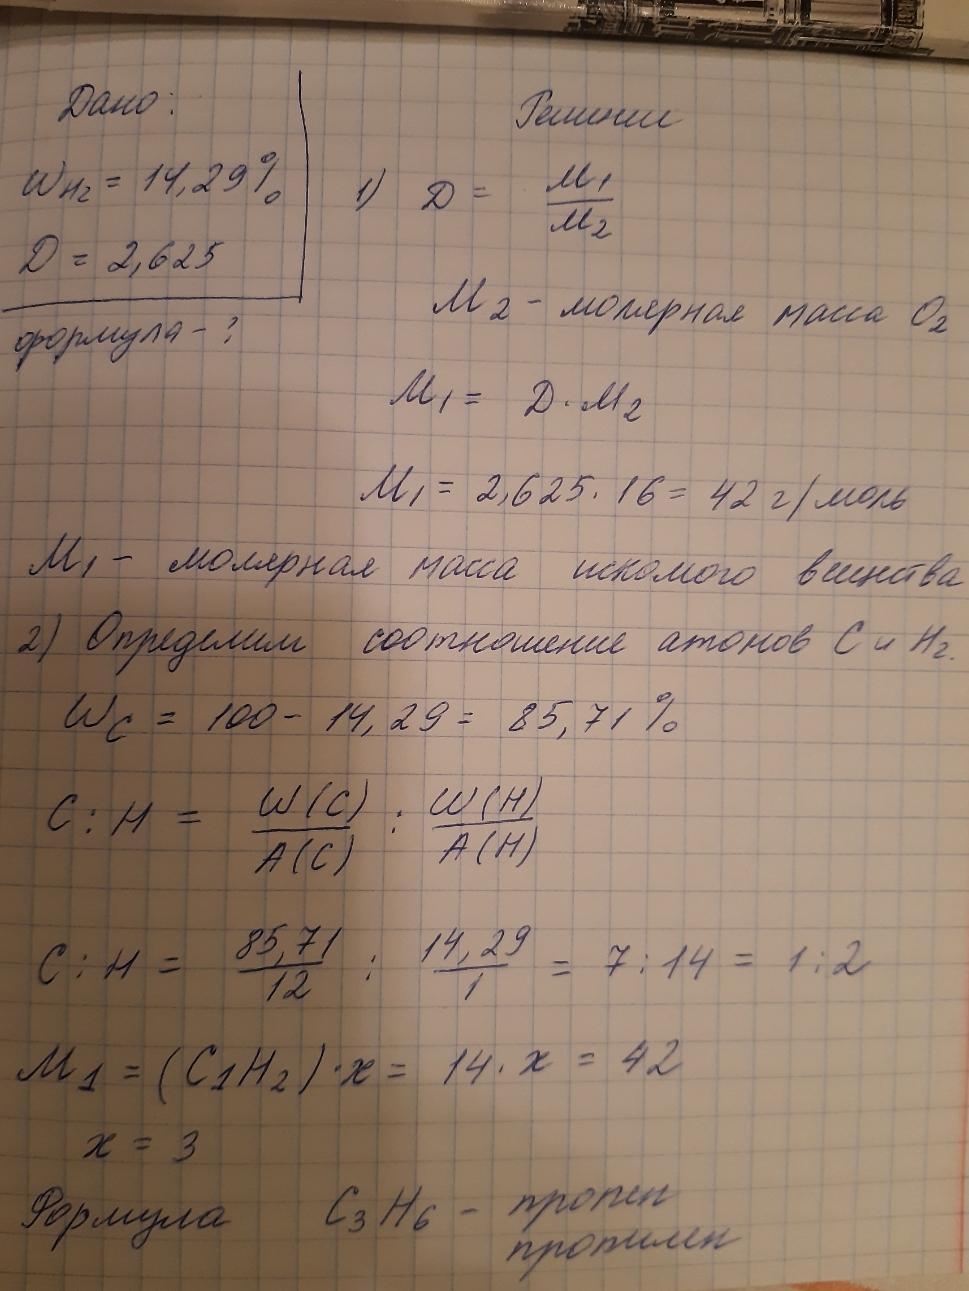 Дано:
WH₂ = 14,29%
D = 2,625
формула - ?
Решение
1) D = M₁/M₂
M₂ - молярная масса O₂
M₁ = D · M₂
M₁ = 2,625 · 16 = 42 г/моль
M₁ - молярная масса искомого вещества
2) Определим соотношение атомов C и H₂.
WC = 100 - 14,29 = 85,71%
C : H = W(C)/A(C) : W(H)/A(H)
C : H = 85,71/12 : 14,29/1 = 7 : 14 = 1 : 2
M₁ = (C₁H₂) · x = 14 · x = 42
x = 3
Формула C₃H₆ - пропен
пропилен